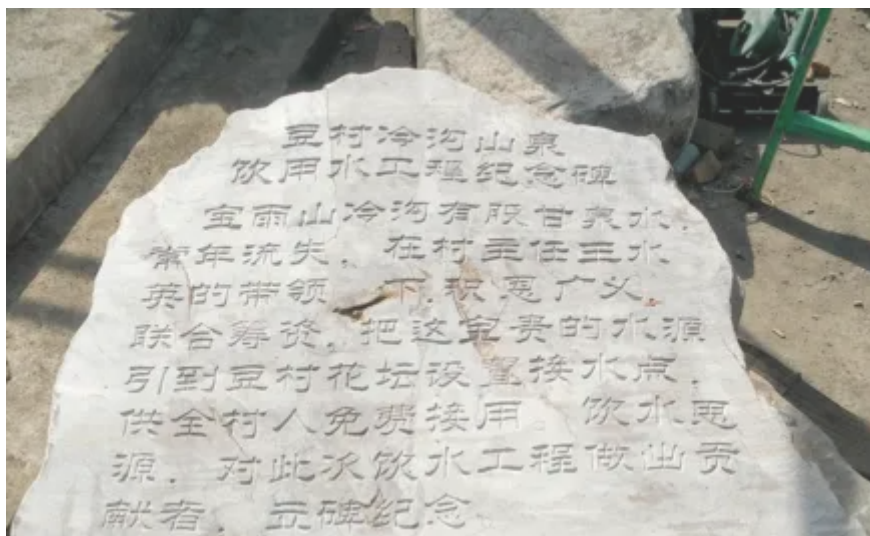 豆村冷沟山泉
饮用水工程纪念碑
宝雨山冷沟有股甘泉水，
常年流失，在村主任王水
英的带领 下，积思广义，
联合筹资，把这宝贵的水源
引到豆村花坛设置接水点，
供全村人免费接用。饮水思
源，对此次饮水工程做出贡
献者，立碑纪念